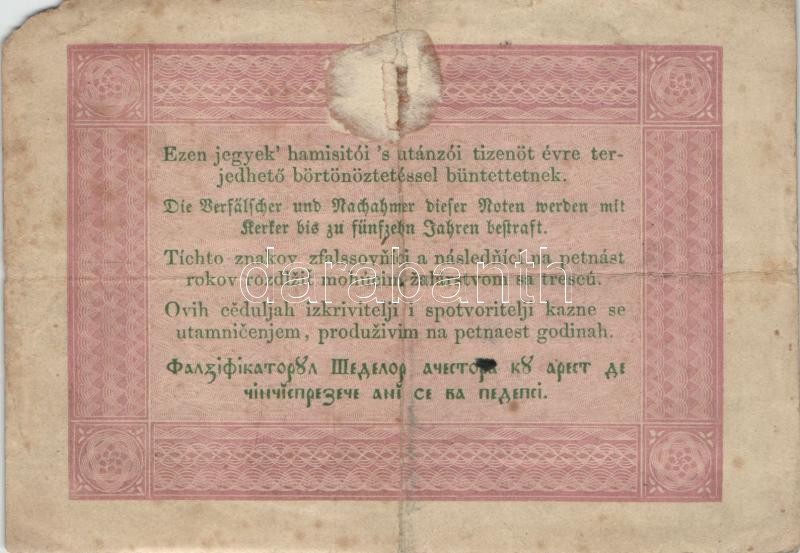 Ezen jegyek’ hamisitói ’s utánzói tizenöt évre ter-
jedhető börtönöztetéssel büntettetnek.
Die Verfälscher und Nachahmer dieser Noten werden mit
Kerker bis zu fünfzehn Jahren bestraft.
Tíchto znakov zfalssovňíci a následňíci na petnást
rokov rozdlžiť mohúcim žalárstvom sa trescú.
darabanth
Ovih cěduljah izkrivitelji i spotvoritelji kazne se
utamničenjem, produživim na petnaest godinah.
Фалзіфікаторꙋл Шеделор ачестора кꙋ арест де
чінчіспрезече ані се ва педепсі.